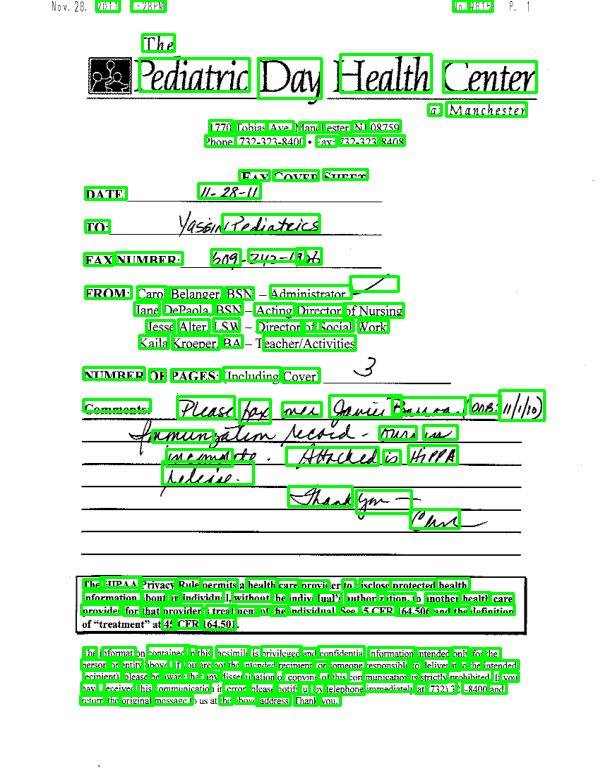 Nov. 28. 2011 P. 1
The
Pediatric Day Health Center
at Manchester
1770 Tobias Ave Manchester NJ 08759
Phone 732-323-8400 • Fax: 732-323-8408
FAX COVER SHEET
DATE: 11-28-11
TO: Yassin Pediatrics
FAX NUMBER: 609-242-1926
FROM: Carol Belanger, BSN – Administrator
Jane DePaola, BSN – Acting Director of Nursing
Jesse Alter, LSW – Director of Social Work
Kaila Kroener, BA – Teacher/Activities
NUMBER OF PAGES: (Including Cover) 3
Comments: Please fax over Javier (DOB: 11/1/10)
Immunization record - ours is
incomplete. Attached is HiPPA
release.
Thank you —
The HIPAA Privacy Rule permits a health care provider to disclose protected health
information about an individual, without the individual's authorization, to another health care
provider for that provider's treatment of the individual. See 45 CFR 164.506 and the definition
of "treatment" at 45 CFR 164.501.
The information contained in this facsimile is privileged and confidential information intended only for the
person or entity above. If you are not the intended recipient or someone responsible to deliver it to the intended
recipient, please be aware that any dissemination or copying of this communication is strictly prohibited. If you
have received this communication in error, please notify us by telephone immediately at (732) 323-8400 and
return the original message to us at the above address. Thank you.